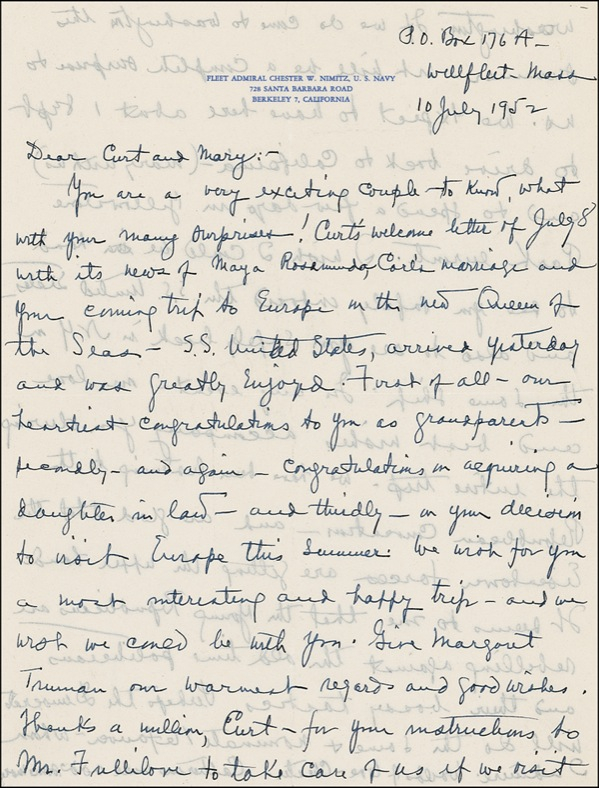 P.O. Box 176 A –
Wellfleet – Mass
FLEET ADMIRAL CHESTER W. NIMITZ, U. S. NAVY
728 SANTA BARBARA ROAD
BERKELEY 7, CALIFORNIA
10 July 1952
Dear Curt and Mary:–
You are a very exciting couple – to know, what
with your many surprises! Curt's welcome letter of July 8
with its news of Maya Rosamunda, marriage and
your coming trip to Europe in the new Queen of
the Seas – S.S. United States, arrived yesterday
and was greatly enjoyed. First of all – our
heartiest congratulations to you as grandparents –
secondly – and again – congratulations on acquiring a
daughter in law – and thirdly – on your decision
to visit Europe this summer. We wish for you
a most interesting and happy trip – and we
wish we could be with you. Give Margaret
Truman our warmest regards and good wishes.
Thanks a million, Curt – for your instructions to
Mr. Fullilove to take care of us if we visit